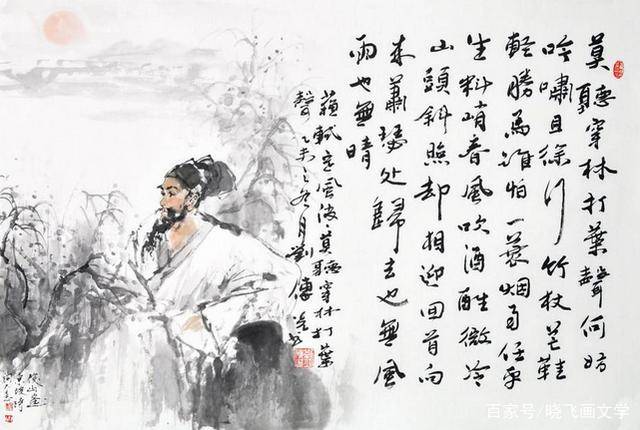 莫聽穿林打葉聲何妨
吟嘯且徐行竹杖芒鞋
輕勝馬誰怕一蓑烟雨任平
生料峭春風吹酒醒微冷
山頭斜照却相迎回首向
来蕭瑟处歸去也無風
雨也無晴
蘇軾定風波莫聽穿林打葉
聲乙未之冬月劉傳
百家号/晓飞画文学